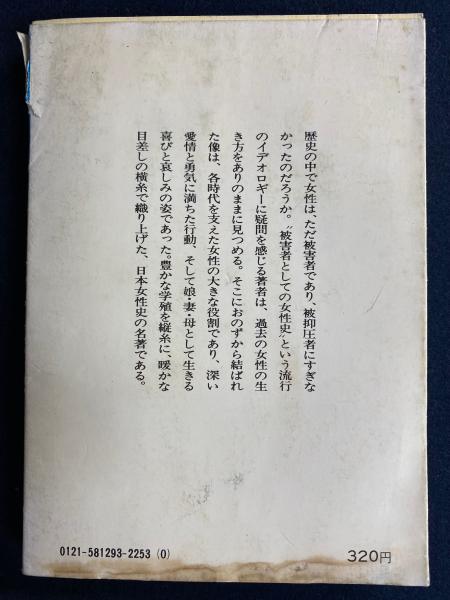 歴史の中で女性は、ただ被害者であり、被抑圧者にすぎな
かったのだろうか。〝被害者としての女性史〟という流行
のイデオロギーに疑問を感じる著者は、過去の女性の生
き方をありのままに見つめる。そこにおのずから結ばれ
た像は、各時代を支えた女性の大きな役割であり、深い
愛情と勇気に満ちた行動、そして娘・妻・母として生きる
喜びと哀しみの姿であった。豊かな学殖を縦糸に、暖かな
目差しの横糸で織り上げた、日本女性史の名著である。
0121-581293-2253 (0)
320円